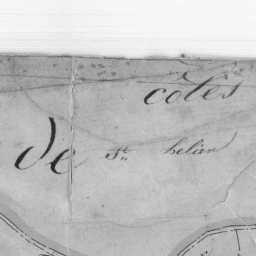 côtes
de St. helien